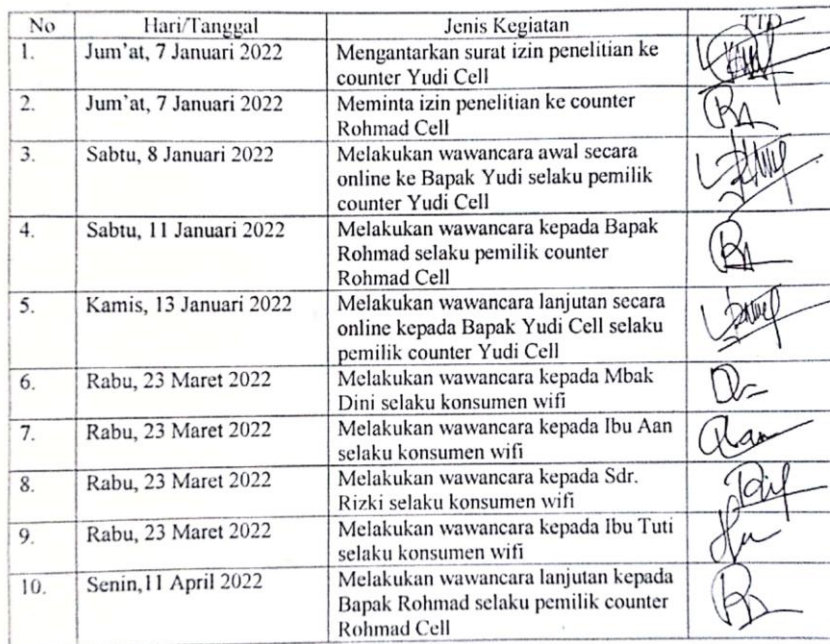 No Hari/Tanggal Jenis Kegiatan TTD
1. Jum'at, 7 Januari 2022 Mengantarkan surat izin penelitian ke
counter Yudi Cell
2. Jum'at, 7 Januari 2022 Meminta izin penelitian ke counter
Rohmad Cell
3. Sabtu, 8 Januari 2022 Melakukan wawancara awal secara
online ke Bapak Yudi selaku pemilik
counter Yudi Cell
4. Sabtu, 11 Januari 2022 Melakukan wawancara kepada Bapak
Rohmad selaku pemilik counter
Rohmad Cell
5. Kamis, 13 Januari 2022 Melakukan wawancara lanjutan secara
online kepada Bapak Yudi Cell selaku
pemilik counter Yudi Cell
6. Rabu, 23 Maret 2022 Melakukan wawancara kepada Mbak
Dini selaku konsumen wifi
7. Rabu, 23 Maret 2022 Melakukan wawancara kepada Ibu Aan
selaku konsumen wifi
8. Rabu, 23 Maret 2022 Melakukan wawancara kepada Sdr.
Rizki selaku konsumen wifi
9. Rabu, 23 Maret 2022 Melakukan wawancara kepada Ibu Tuti
selaku konsumen wifi
10. Senin,11 April 2022 Melakukan wawancara lanjutan kepada
Bapak Rohmad selaku pemilik counter
Rohmad Cell